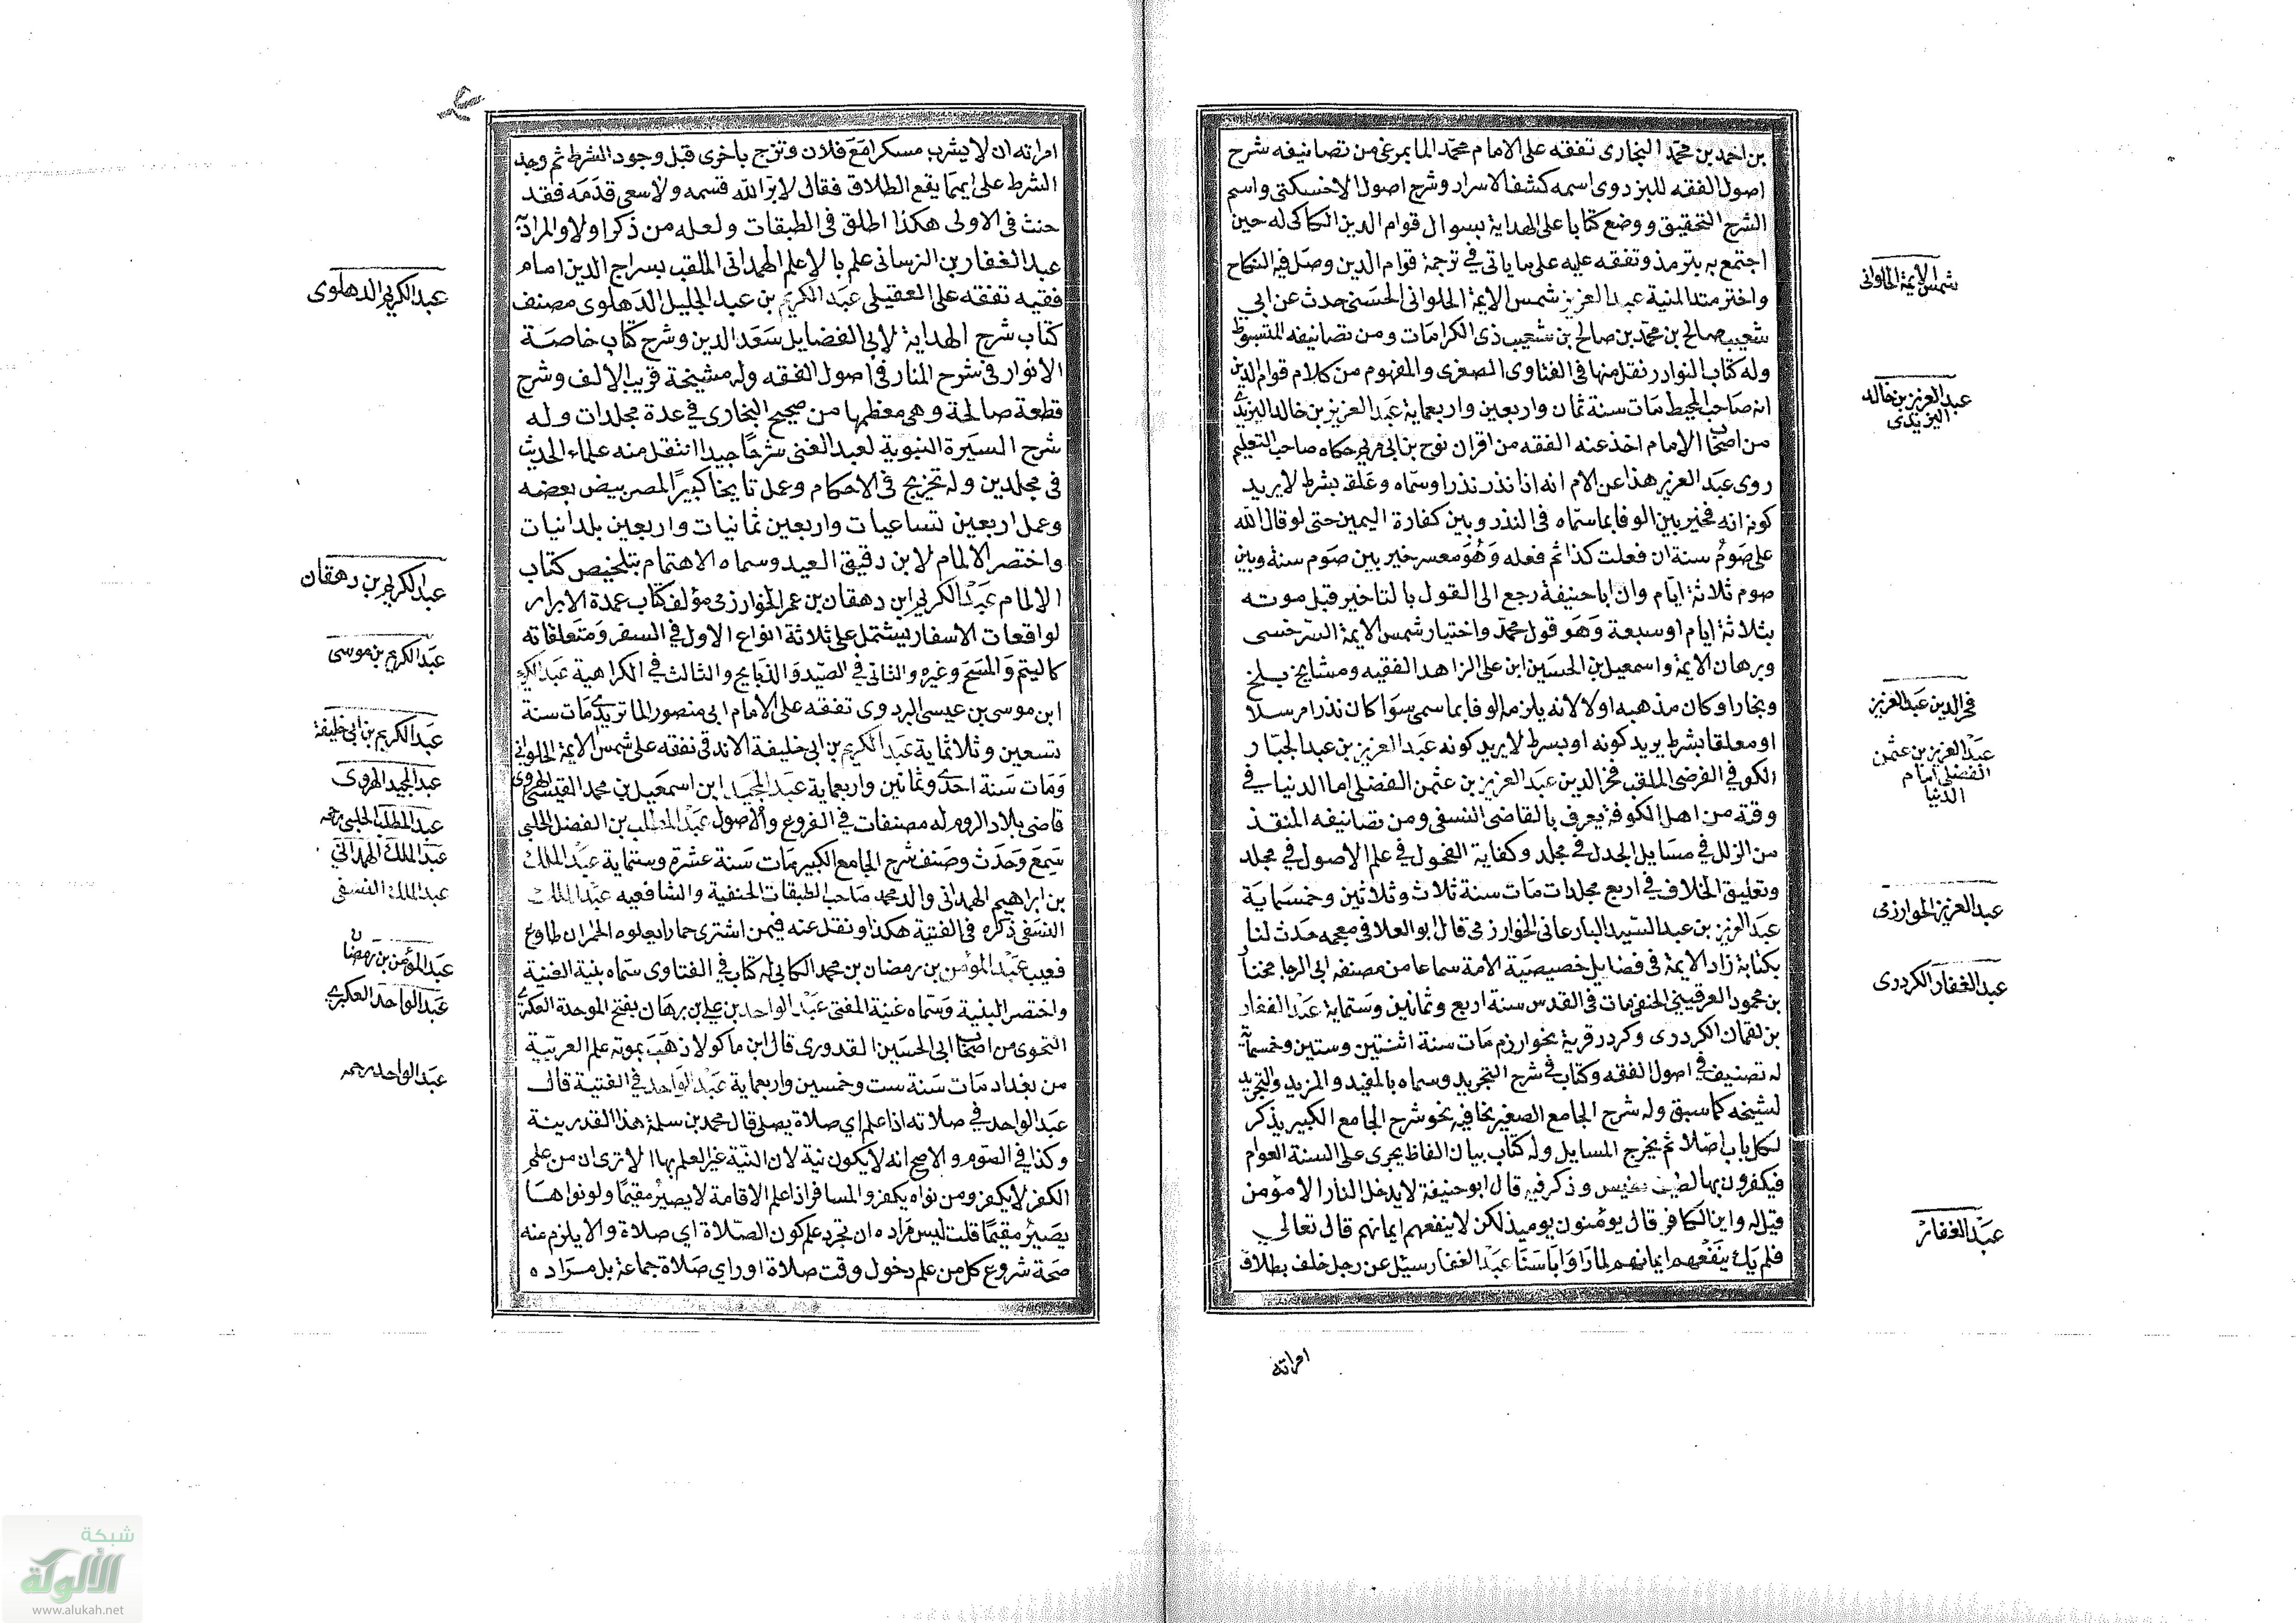 بن احمد بن محمد البخارى تفقه على الامام محمد المايمرغى من تصانيفه شرح
اصول الفقه للبزدوى اسمه كشف الاسرار وشرح اصول الاخسكتى واسم
الشرح التحقيق ووضع كتابا على الهداية بسوال قوام الدين الكاكى له حين
اجتمع به بترمذ وتفقه عليه على ما ياتى فى ترجمة قوام الدين وصل فيه النكاح
واخترمته المنية عبد العزيز شمس الايمة الحلوانى الحسنى حدث عن ابي
شعيب صالح بن محمد بن صالح بن شعيب ذى الكرامات ومن تصانيفه المبسوط
وله كتاب النوادر نقل منها فى الفتاوى الصغرى والمفهوم من كلام قوام الدين
انه صاحب المحيط مات سنة ثمان واربعين واربعماية عبد العزيز بن خالد اليزيدى
من اصحاب الامام اخذ عنه الفقه من اقران نوح بن ابى مريم حكاه صاحب التعليم
روى عبد العزيز هذا عن الامام انه اذا نذر نذرا وسماه وعلقه بشرط لا يريد
كونه انه مخير بين الوفا بما سماه فى النذر وبين كفارة اليمين حتى لو قال الله
على صوم سنة ان فعلت كذا ثم فعله وهو معسر خير بين صوم سنة وبين
صوم ثلاثة ايام وان ابا حنيفة رجع الى القول بالتاخير قبل موته
بثلاثة ايام او سبعة وهو قول محمد واختيار شمس الايمة السرخسى
وبرهان الايمة واسمعيل بن الحسين ابن على الزاهد الفقيه ومشايخ بلخ
وبخارا وكان مذهبه اولا لانه يلزمه الوفا بما سمى سوا كان نذرا مرسلا
او معلقا بشرط يريد كونه او بسرط لا يريد كونه عبد العزيز بن عبد الجبار
الكوفى الفرضى الملقب فخر الدين عبد العزيز بن عثمن الفضلى اما الدنيا في
وقته من اهل الكوفة يعرف بالقاضى النسفى ومن تصانيفه المنقذ
من الزلل فى مسايل الجدل فى مجلد وكفاية الفحول في علم الاصول في مجلد
وتعليق الخلاف فى اربع مجلدات مات سنة ثلاث وثلاثين وخمسماية
عبد العزيز بن عبد السيد البارعانى الخوارزمى قال ابو العلا فى معجمه حدث لنا
بكتابة زاد الايمة فى فضايل خصيصية الامة سماعا من مصنفه ابى الرجا مختار
بن محمود الحنفى مات فى القدس سنة اربع وثمانين وستماية عبد الغفار
بن لقمان الكردرى وكردر قرية بخوارزم مات سنة اثنتين وستين وخمسماية
له تصنيف فى اصول الفقه وكتاب فى شرح التجريد وسماه بالمفيد والمزيد والتجريد
لشيخه كما سبق وله شرح الجامع الصغير نحا فيه نحو شرح الجامع الكبير يذكر
لكل باب اصلا ثم يخرج المسايل وله كتاب بيان الفاظ يجرى على السنة العوام
فيكفرون بها لطيف نفيس وذكر فيه قال ابو حنيفة لا يدخل النار الا مؤمن
قيل له واين الكافر قال يؤمنون يوميذ لكن لا ينفعهم ايمانهم قال تعالي
فلم يك ينفعهم ايمانهم لما راوا باسنا عبد الغفار سئل عن رجل خلف بطلاق
امراته
شمس الايمة الحلوانى
عبد العزيز بن خالد
اليزيدى
فخر الدين عبد العزيز
عبد العزيز بن عثمن
الفضلى امام
الدنيا
عبد العزيز الخوارزمى
عبد الغفار الكردرى
عبد الغفار
امراته ان لا يشرب مسكرا مع فلان وتزوج باخرى قبل وجود الشرط ثم وجد
الشرط على ايهما يقع الطلاق فقال لا بر الله قسمه ولا سعى قدمه فقد
حنث فى الاولى هكذا اطلق فى الطبقات ولعله من ذكر اولا والمراد به
عبد الغفار بن علم بالاعلم الهمدانى الملقب بسراج الدين امام
فقيه تفقه على العقيلى عبد الكريم بن عبد الجليل الدهلوى مصنف
كتاب شرح الهداية لابى الفضايل سعد الدين وشرح كتاب خاصة
الانوار فى شرح المنار فى اصول الفقه وله مشيخة قريب الالف وشرح
قطعة صالحة وهى معظمها من صحيح البخارى فى عدة مجلدات وله
شرح السيرة النبوية لعبد الغنى شرحا جيدا انتقل منه علماء الحديث
فى مجلدين وله تخريج فى الاحكام وعمل تاريخا كبيرا لمصر بيض بعضه
وعمل اربعين تساعيات واربعين ثمانيات واربعين بلدانيات
واختصر الالمام لابن دقيق العيد وسماه الاهتمام بتلخيص كتاب
الالمام عبد الكريم ابن دهقان بن عمر الخوارزمى مؤلف كتاب عمدة الابرار
لواقعات الاسفار يشتمل على ثلاثة انواع الاول في السفر ومتعلقاته
كاليتم والمسح وغيره والثانى في الصيد والذبايح والثالث فى الكراهية عبد الكريم
ابن موسى بن عيسى البزدوى تفقه على الامام ابى منصور الماتريدى مات سنة
تسعين وثلاثماية عبد الكريم بن ابى خليفة الاندقى تفقه على شمس الايمة الحلوانى
ومات سنة احدى وثمانين واربعماية عبد المجيد ابن اسمعيل بن محمد القيسى الهروى
قاضى بلاد الروم له مصنفات في الفروع والاصول عبد المطلب بن الفضل الحلبى
سمع وحدث وصنف شرح الجامع الكبير مات سنة عشرة وستماية عبد الملك
بن ابراهيم الهمدانى والد محمد صاحب الطبقات الحنفية والشافعيه عبد الملك
النسفى ذكره فى القنية هكذا ونقل عنه فيمن اشترى حمارا يعلوه الحمر ان طاوع
فعيب عبد المؤمن بن رمضان بن محمد الكابى له كتاب في الفتاوى سماه بنية القنية
واختصر البنية وسماه غنية المفتى عبد الواحد بن على بن برهان بفتح الموحدة العكبرى
النحوى من اصحاب ابى الحسين القدورى قال ابن ماكولا ذهب بموته علم العربية
من بغداد مات سنة ست وخمسين واربعماية عبد الواحد في القنية قال
عبد الواحد في صلاته اذا علم اي صلاة يصلى قال محمد بن سلمة هذا القدر نية
وكذا في الصوم والاصح انه لا يكون نية لان النية غير العلم بها الا ترى ان من علم
الكفر لا يكفر ومن نواه يكفر والمسافر اذا علم الاقامة لا يصير مقيما ولو نواها
يصير مقيما قلت ليس مراده ان تجرد علم كون الصلاة اي صلاة والا يلزم عنه
صحة شروع كل من علم دخول وقت صلاة او راي صلاة جماعة بل مراده
عبد الكريم الدهلوى
عبد الكريم بن دهقان
عبد الكريم بن موسى
عبد الكريم بن ابى خليفة
عبد المجيد الهروى
عبد المطلب الحلبى رحمه
عبد الملك الهمدانى
عبد الملك النسفى
عبد المؤمن بن رمضان
عبد الواحد العكبرى
عبد الواحد رحمه
شبكة
الألوكة
www.alukah.net